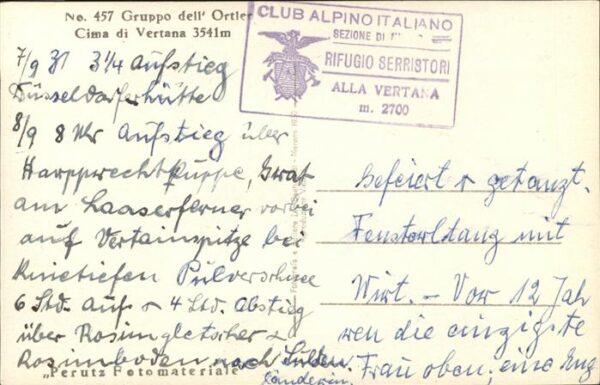 No. 457 Gruppo dell' Ortler
Cima di Vertana 3541m
CLUB ALPINO ITALIANO
SEZIONE DI
RIFUGIO SERRISTORI
ALLA VERTANA
m. 2700
7/9 31 3¼ Aufstieg
Düsseldorferhütte
8/9 8 Uhr Aufstieg über
Harpprechtkuppe, Grat
am Laaserferner vorbei
auf Vertainspitze bei
Knietiefen Pulverschnee
6 Std. auf & 4 Std. Abstieg
über Rosimgletscher &
Rosimboden nach Sulden.
„Perutz Fotomateriale"
Gefeiert & getanzt.
Fensterltanz mit
Wirt. - Vor 12 Jah
ren die einzigste
Frau oben, eine Eng
länderin.